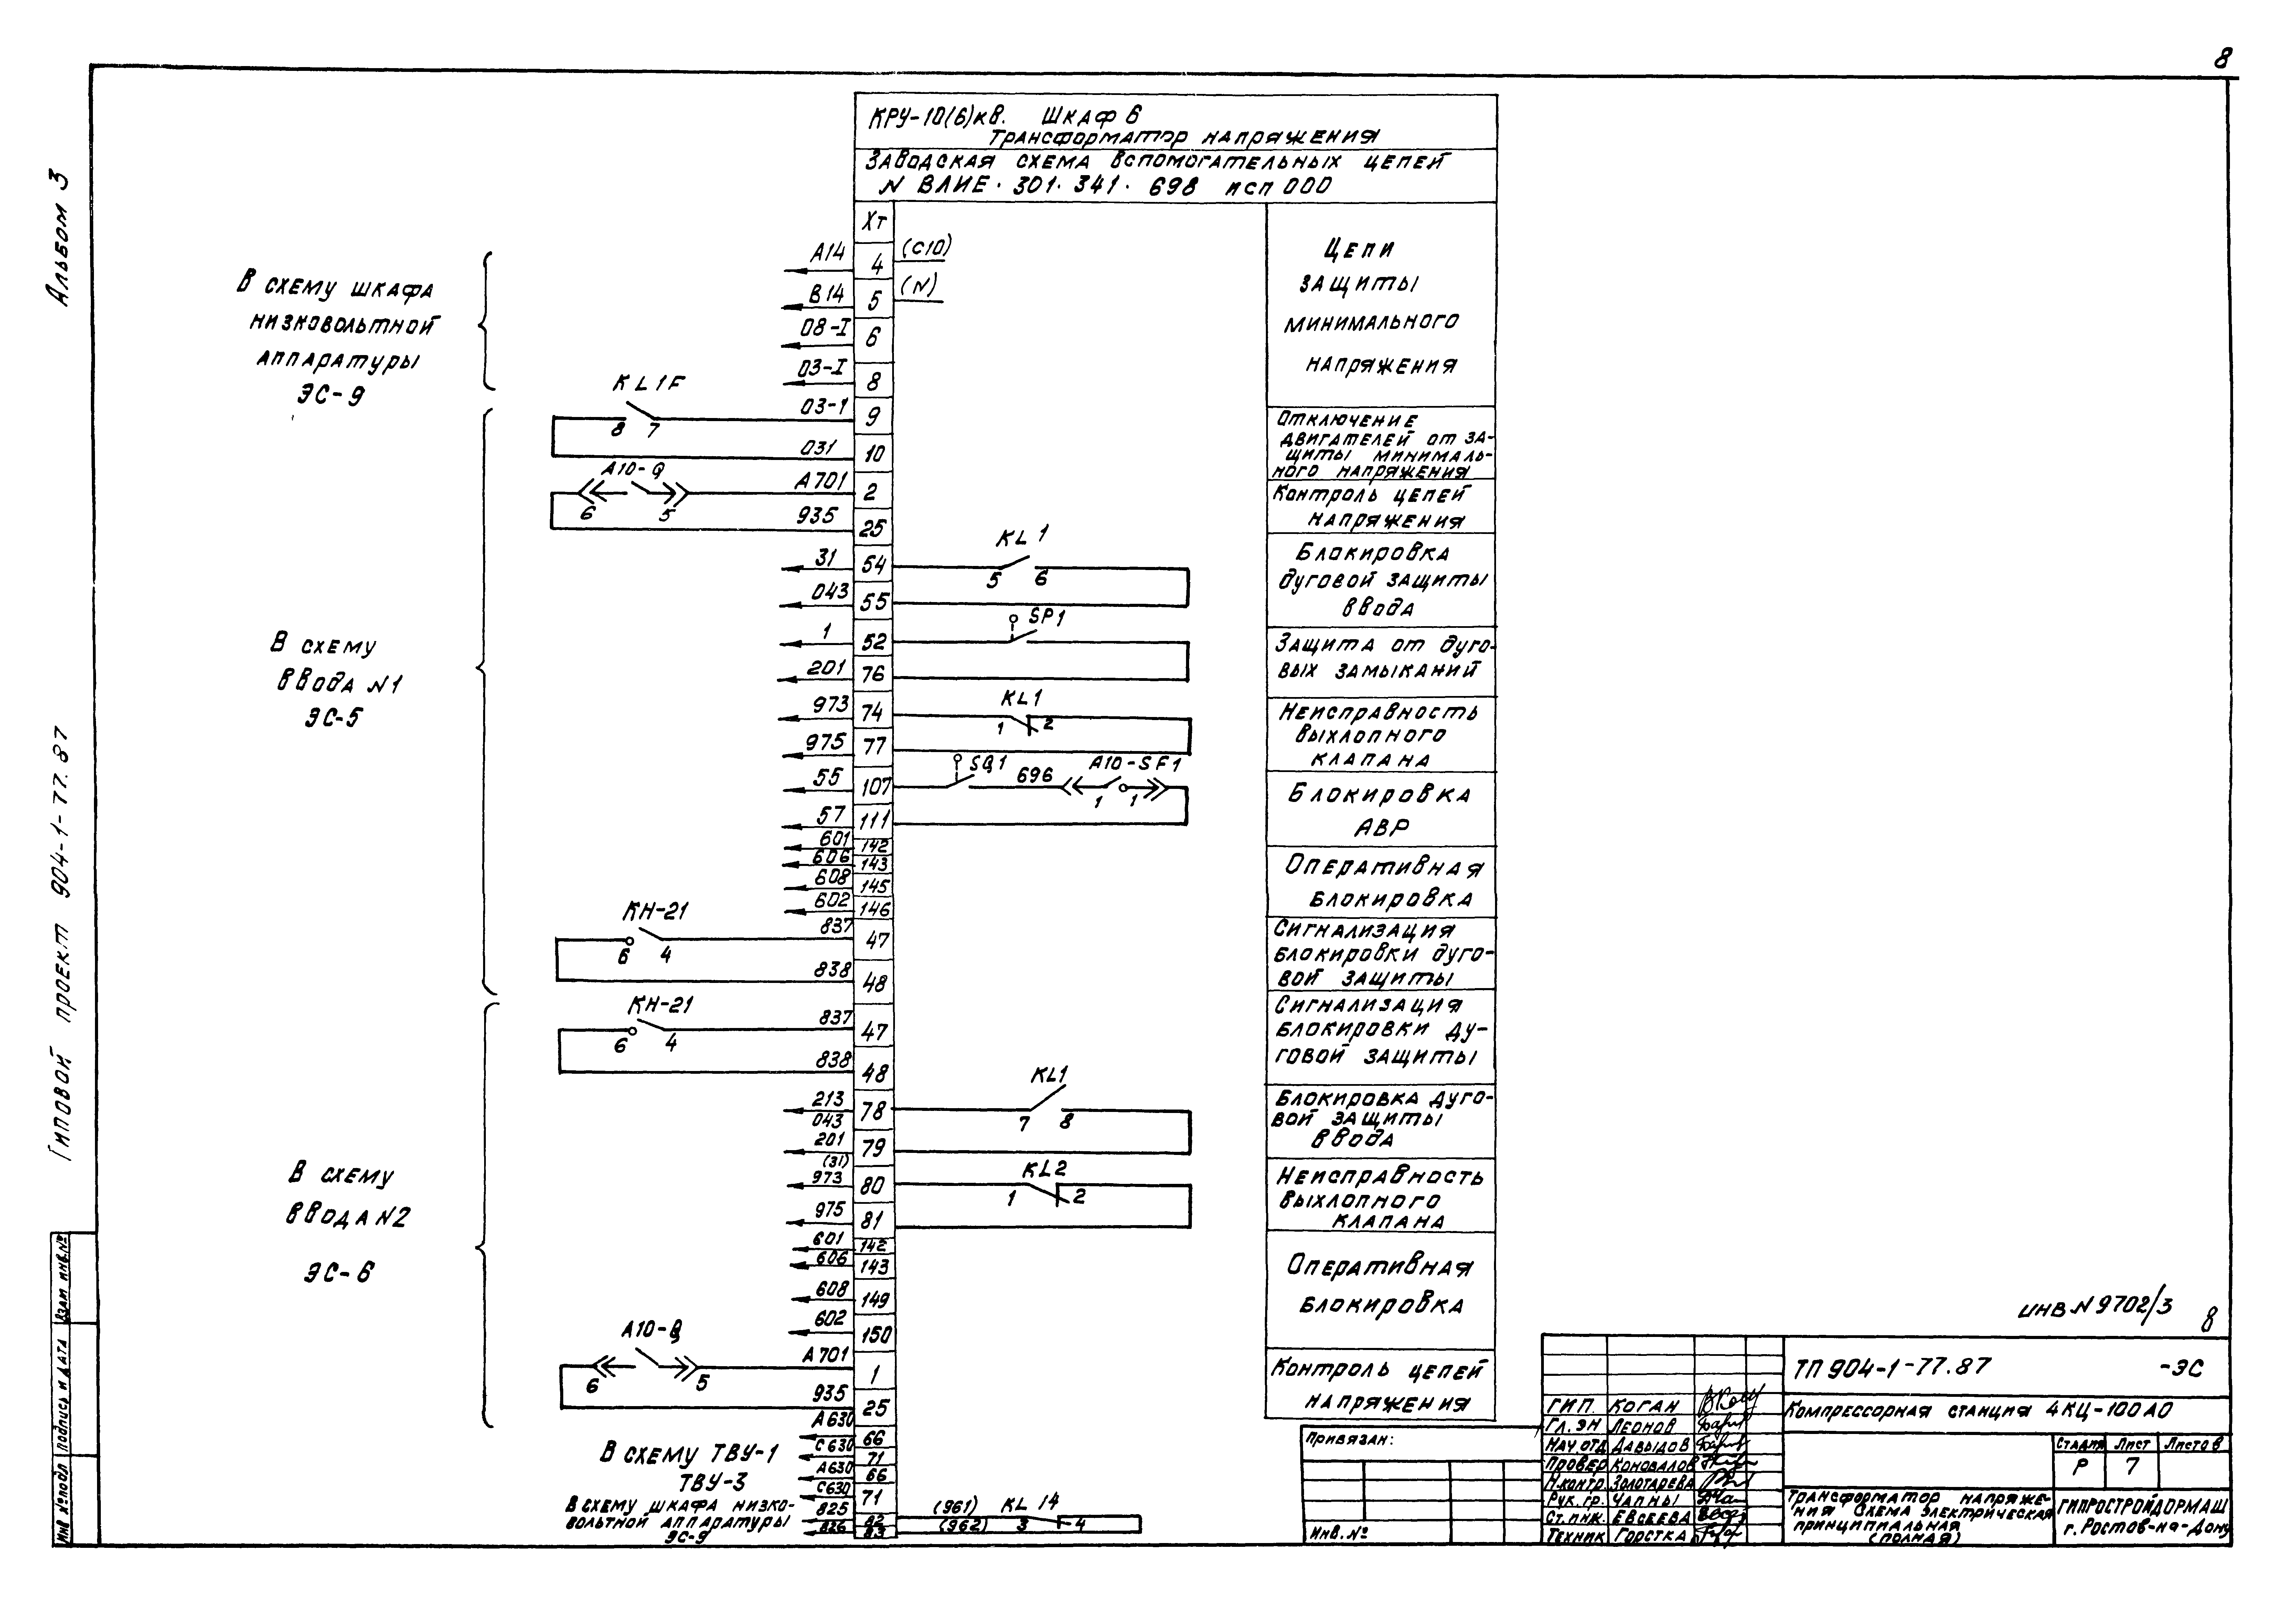 8
Альбом 3
Типовой проект 904-1-77.87
КРУ-10(6)кВ. Шкаф 6
Трансформатор напряжения
Заводская схема вспомогательных цепей
N ВЛИЕ.301.341.698 исп 000
ХТ
В схему шкафа
низковольтной
аппаратуры
ЭС-9
А14 4 (С10)
В14 5 (N)
08-I 6
03-I 8
Цепи
защиты
минимального
напряжения
KL1F
8 7
03-1 9
031 10
Отключение
двигателей от за-
щиты минималь-
ного напряжения
А10-Q
6 5
А701 2
935 25
Контроль цепей
напряжения
В схему
ввода N1
ЭС-5
31 54
043 55
KL1
5 6
Блокировка
дуговой защиты
ввода
1 52
201 76
SP1
Защита от дуго-
вых замыканий
973 74
975 77
KL1
1 2
Неисправность
выхлопного
клапана
55 107
57 111
SQ1 696 А10-SF1
1 1
Блокировка
АВР
601 142
606 143
608 145
602 146
Оперативная
блокировка
КН-21
6 4
837 47
838 48
Сигнализация
блокировки дуго-
вой защиты
КН-21
6 4
837 47
838 48
Сигнализация
блокировки ду-
говой защиты
В схему
ввода N2
ЭС-6
213 78
043
201 79
(31)
KL1
7 8
Блокировка дуго-
вой защиты
ввода
973 80
975 81
KL2
1 2
Неисправность
выхлопного
клапана
601 142
606 143
608 149
602 150
Оперативная
блокировка
А10-Q
6 5
А701 1
935 25
Контроль цепей
напряжения
В схему ТВУ-1
ТВУ-3
А630 66
С630 71
А630 66
С630 71
В схему шкафа низко-
вольтной аппаратуры
ЭС-9
825 82
826 83
(961) KL 14
(962) 3 4
инв N 9702/3
8
Привязан:
Инв.№
ТП 904-1-77.87 -ЭС
Компрессорная станция 4КЦ-100А0
ГИП. Коган
Гл.эн Леонов
Нач.отд Давыдов
Провер Коновалов
Н.контр. Золотарева
Рук.гр. Чапны
Ст.инж. Евсеева
Техник Горстка
Стадия Лист Листов
Р 7
Трансформатор напряже-
ния Схема электрическая
принципиальная
(полная)
ГИПРОСТРОЙДОРМАШ
г.Ростов-на-Дону
Взам инв.№
Подпись и дата
Инв №подл